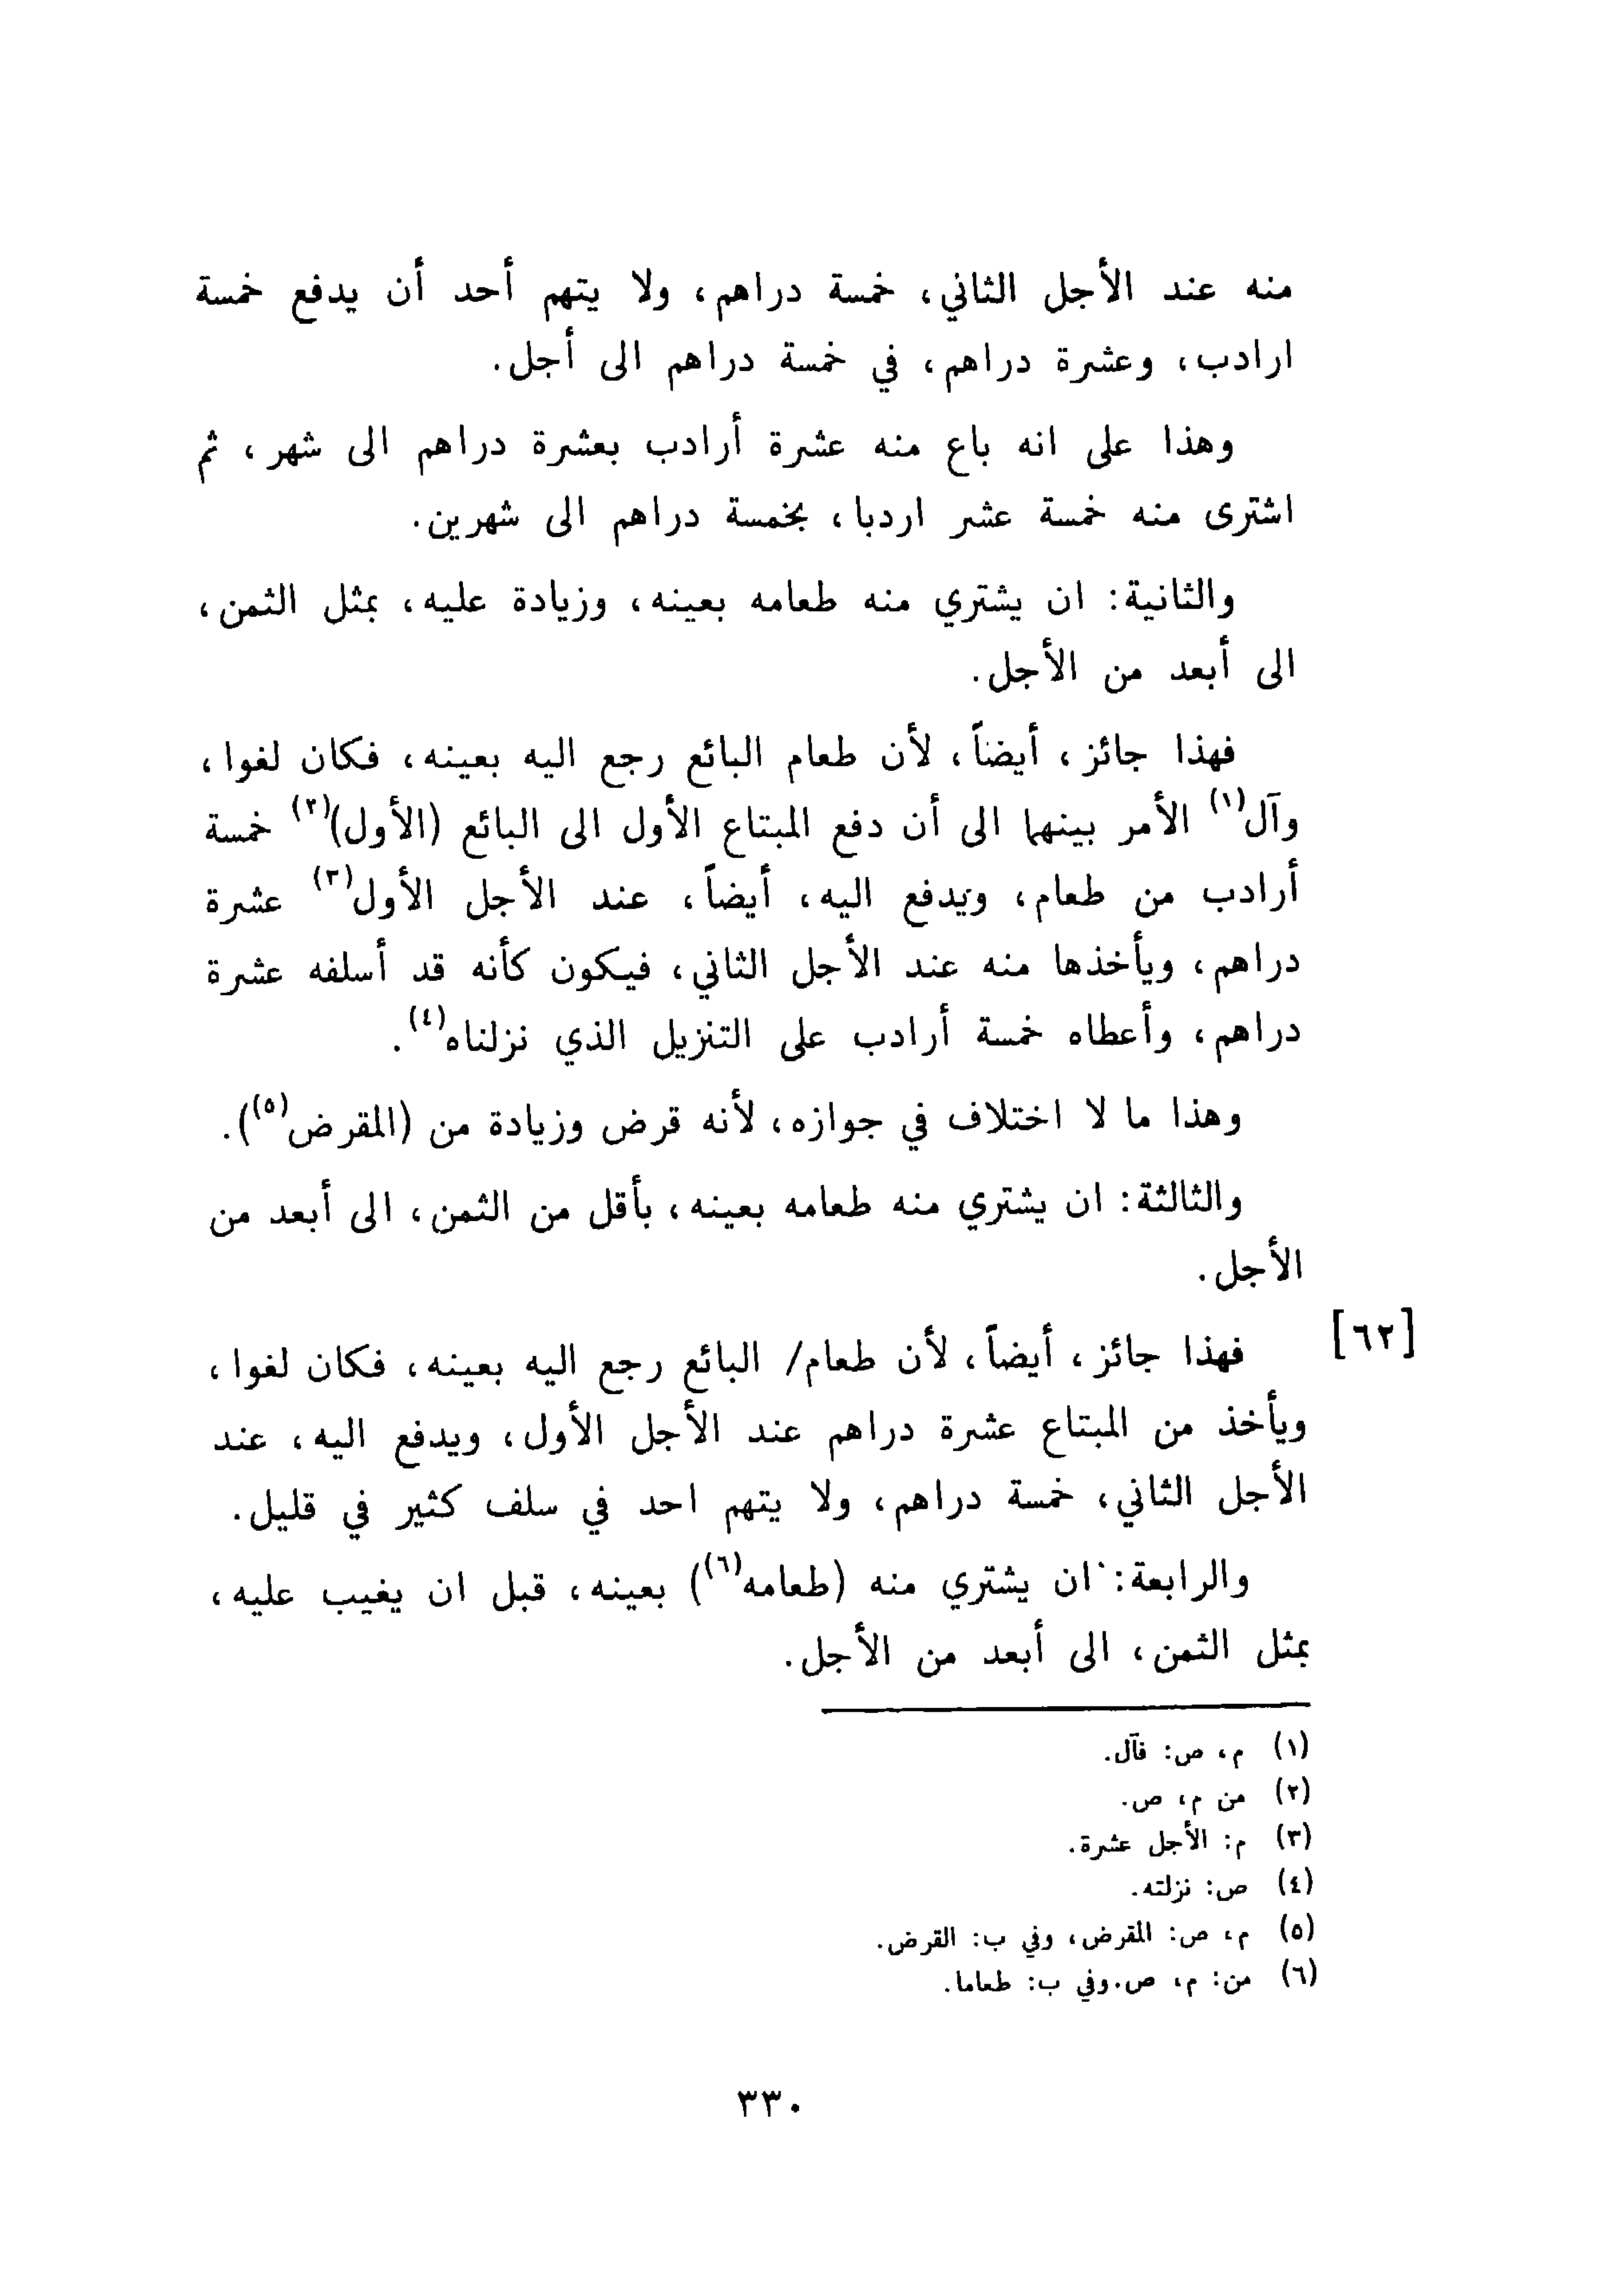 منه عند الأجل الثاني، خمسة دراهم، ولا يتهم أحد أن يدفع خمسة
ارادب، وعشرة دراهم، في خمسة دراهم الى أجل.
وهذا على انه باع منه عشرة أرادب بعشرة دراهم الى شهر، ثم
اشترى منه خمسة عشر اردبا، بخمسة دراهم الى شهرين.
والثانية: ان يشتري منه طعامه بعينه، وزيادة عليه، بمثل الثمن،
الى أبعد من الأجل.
فهذا جائز، أيضاً، لأن طعام البائع رجع اليه بعينه، فكان لغوا،
وآل(١) الأمر بينهما الى أن دفع المبتاع الأول الى البائع (الأول)(٢) خمسة
أرادب من طعام، ويدفع اليه، أيضاً، عند الأجل الأول(٣) عشرة
دراهم، ويأخذها منه عند الأجل الثاني، فيكون كأنه قد أسلفه عشرة
دراهم، وأعطاه خمسة أرادب على التنزيل الذي نزلناه(٤).
وهذا ما لا اختلاف في جوازه، لأنه قرض وزيادة من (المقرض(٥)).
والثالثة: ان يشتري منه طعامه بعينه، بأقل من الثمن، الى أبعد من
الأجل.
[٦٢] فهذا جائز، أيضاً، لأن طعام/ البائع رجع اليه بعينه، فكان لغوا،
ويأخذ من المبتاع عشرة دراهم عند الأجل الأول، ويدفع اليه، عند
الأجل الثاني، خمسة دراهم، ولا يتهم احد في سلف كثير في قليل.
والرابعة: ان يشتري منه (طعامه(٦)) بعينه، قبل ان يغيب عليه،
بمثل الثمن، الى أبعد من الأجل.
(١) م، ص: فآل.
(٢) من م، ص.
(٣) م: الأجل عشرة.
(٤) ص: نزلته.
(٥) م، ص: المقرض، وفي ب: القرض.
(٦) من: م، ص.وفي ب: طعاما.
٣٣٠